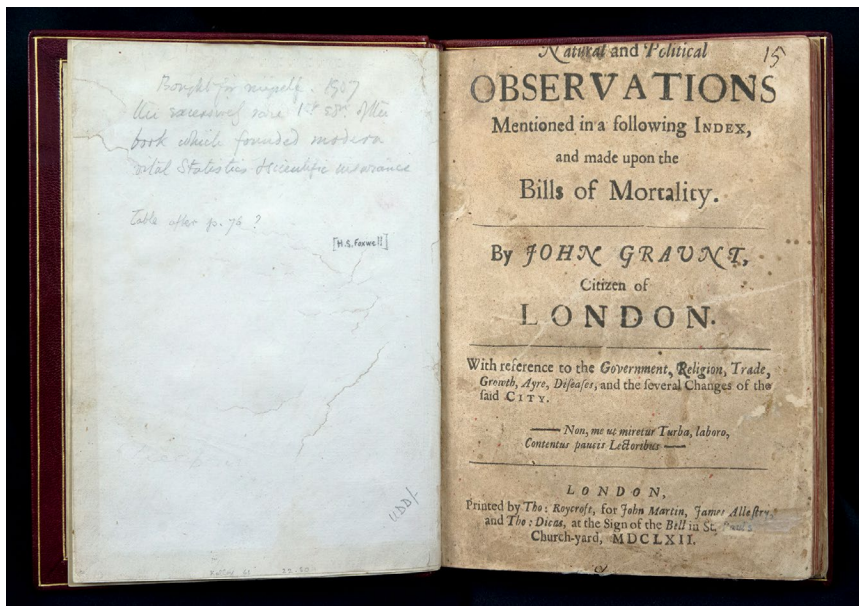 Bought for myself. 1907
the excessively rare 1st edn. of the
book which founded modern
vital Statistics & scientific insurance
Table after p. 76 ?
[H.S. Foxwell]
15
Natural and Political
OBSERVATIONS
Mentioned in a following INDEX,
and made upon the
Bills of Mortality.
By JOHN GRAUNT,
Citizen of
LONDON.
With reference to the Government, Religion, Trade,
Growth, Ayre, Diſeaſes, and the ſeveral Changes of the
ſaid CITY.
—— Non, me ut miretur Turba, laboro,
Contentus paucis Lectoribus ——
LONDON,
Printed by Tho: Roycroft, for John Martin, James Alleſtry,
and Tho: Dicas, at the Sign of the Bell in St. Paul's
Church-yard, MDCLXII.